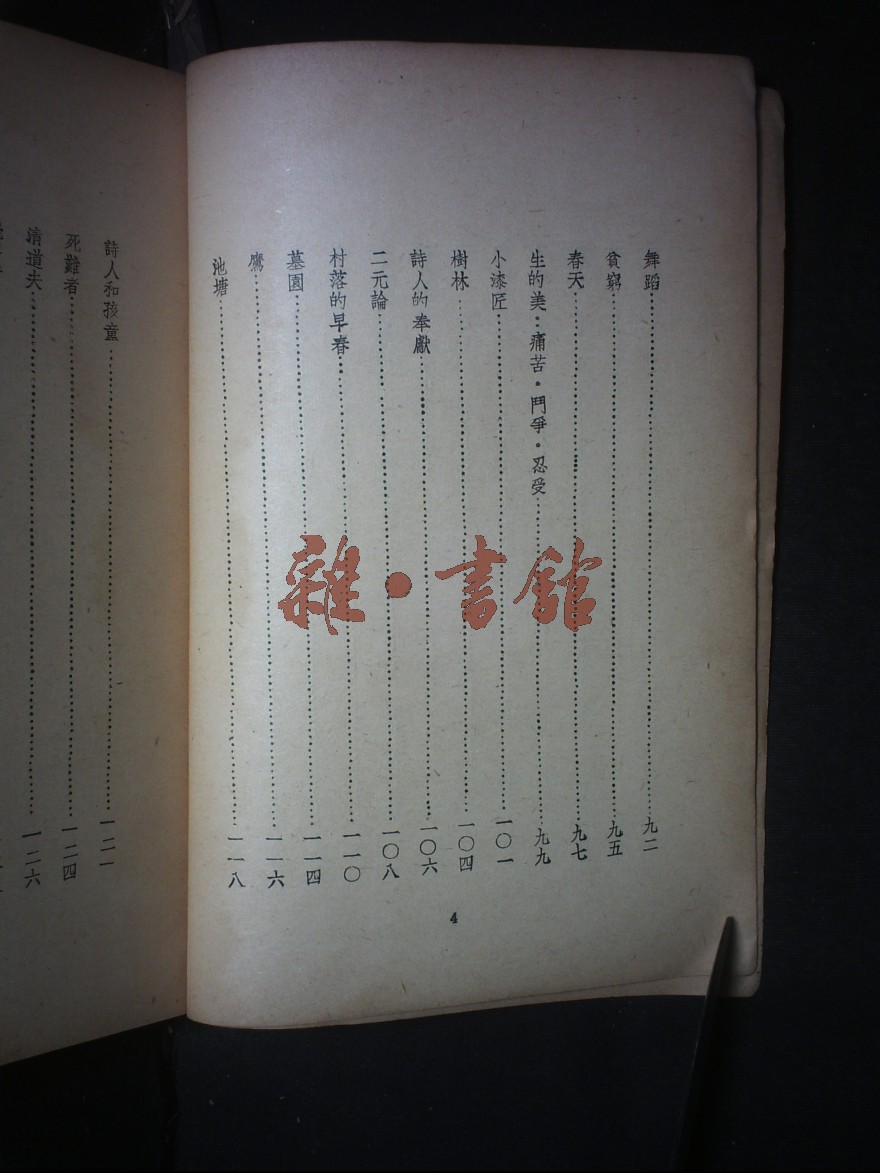 舞蹈……九二
貧窮……九五
春天……九七
生的美·痛苦·鬥爭·忍受……九九
小漆匠……一〇一
樹林……一〇四
詩人的奉獻……一〇六
二元論……一〇八
村落的早春……一一〇
墓園……一一四
鷹……一一六
池塘……一一八
4
詩人和孩童……一二一
死難者……一二四
清道夫……一二六
雜·書館